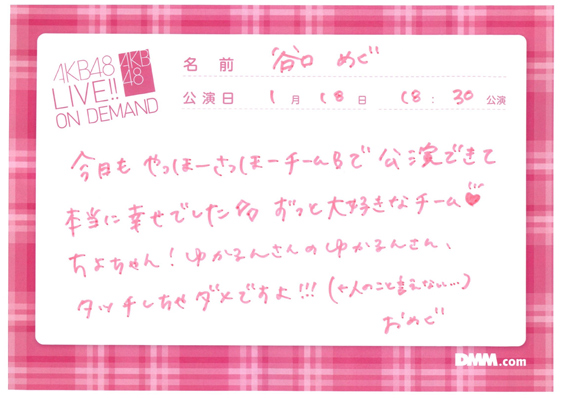 AKB48
LIVE!!
ON DEMAND
AKB
48
名前 谷口 めぐ
公演日 1月 18日 18:30公演
今日も やっほーさっほーチームBで 公演できて
本当に幸せでした ずっと大好きなチーム♥
ちよちゃん!ゆかるんさんのゆかるんさん、
タッチしちゃダメですよ!!!(←人のこと言えない…)
おめぐ
DMM.com